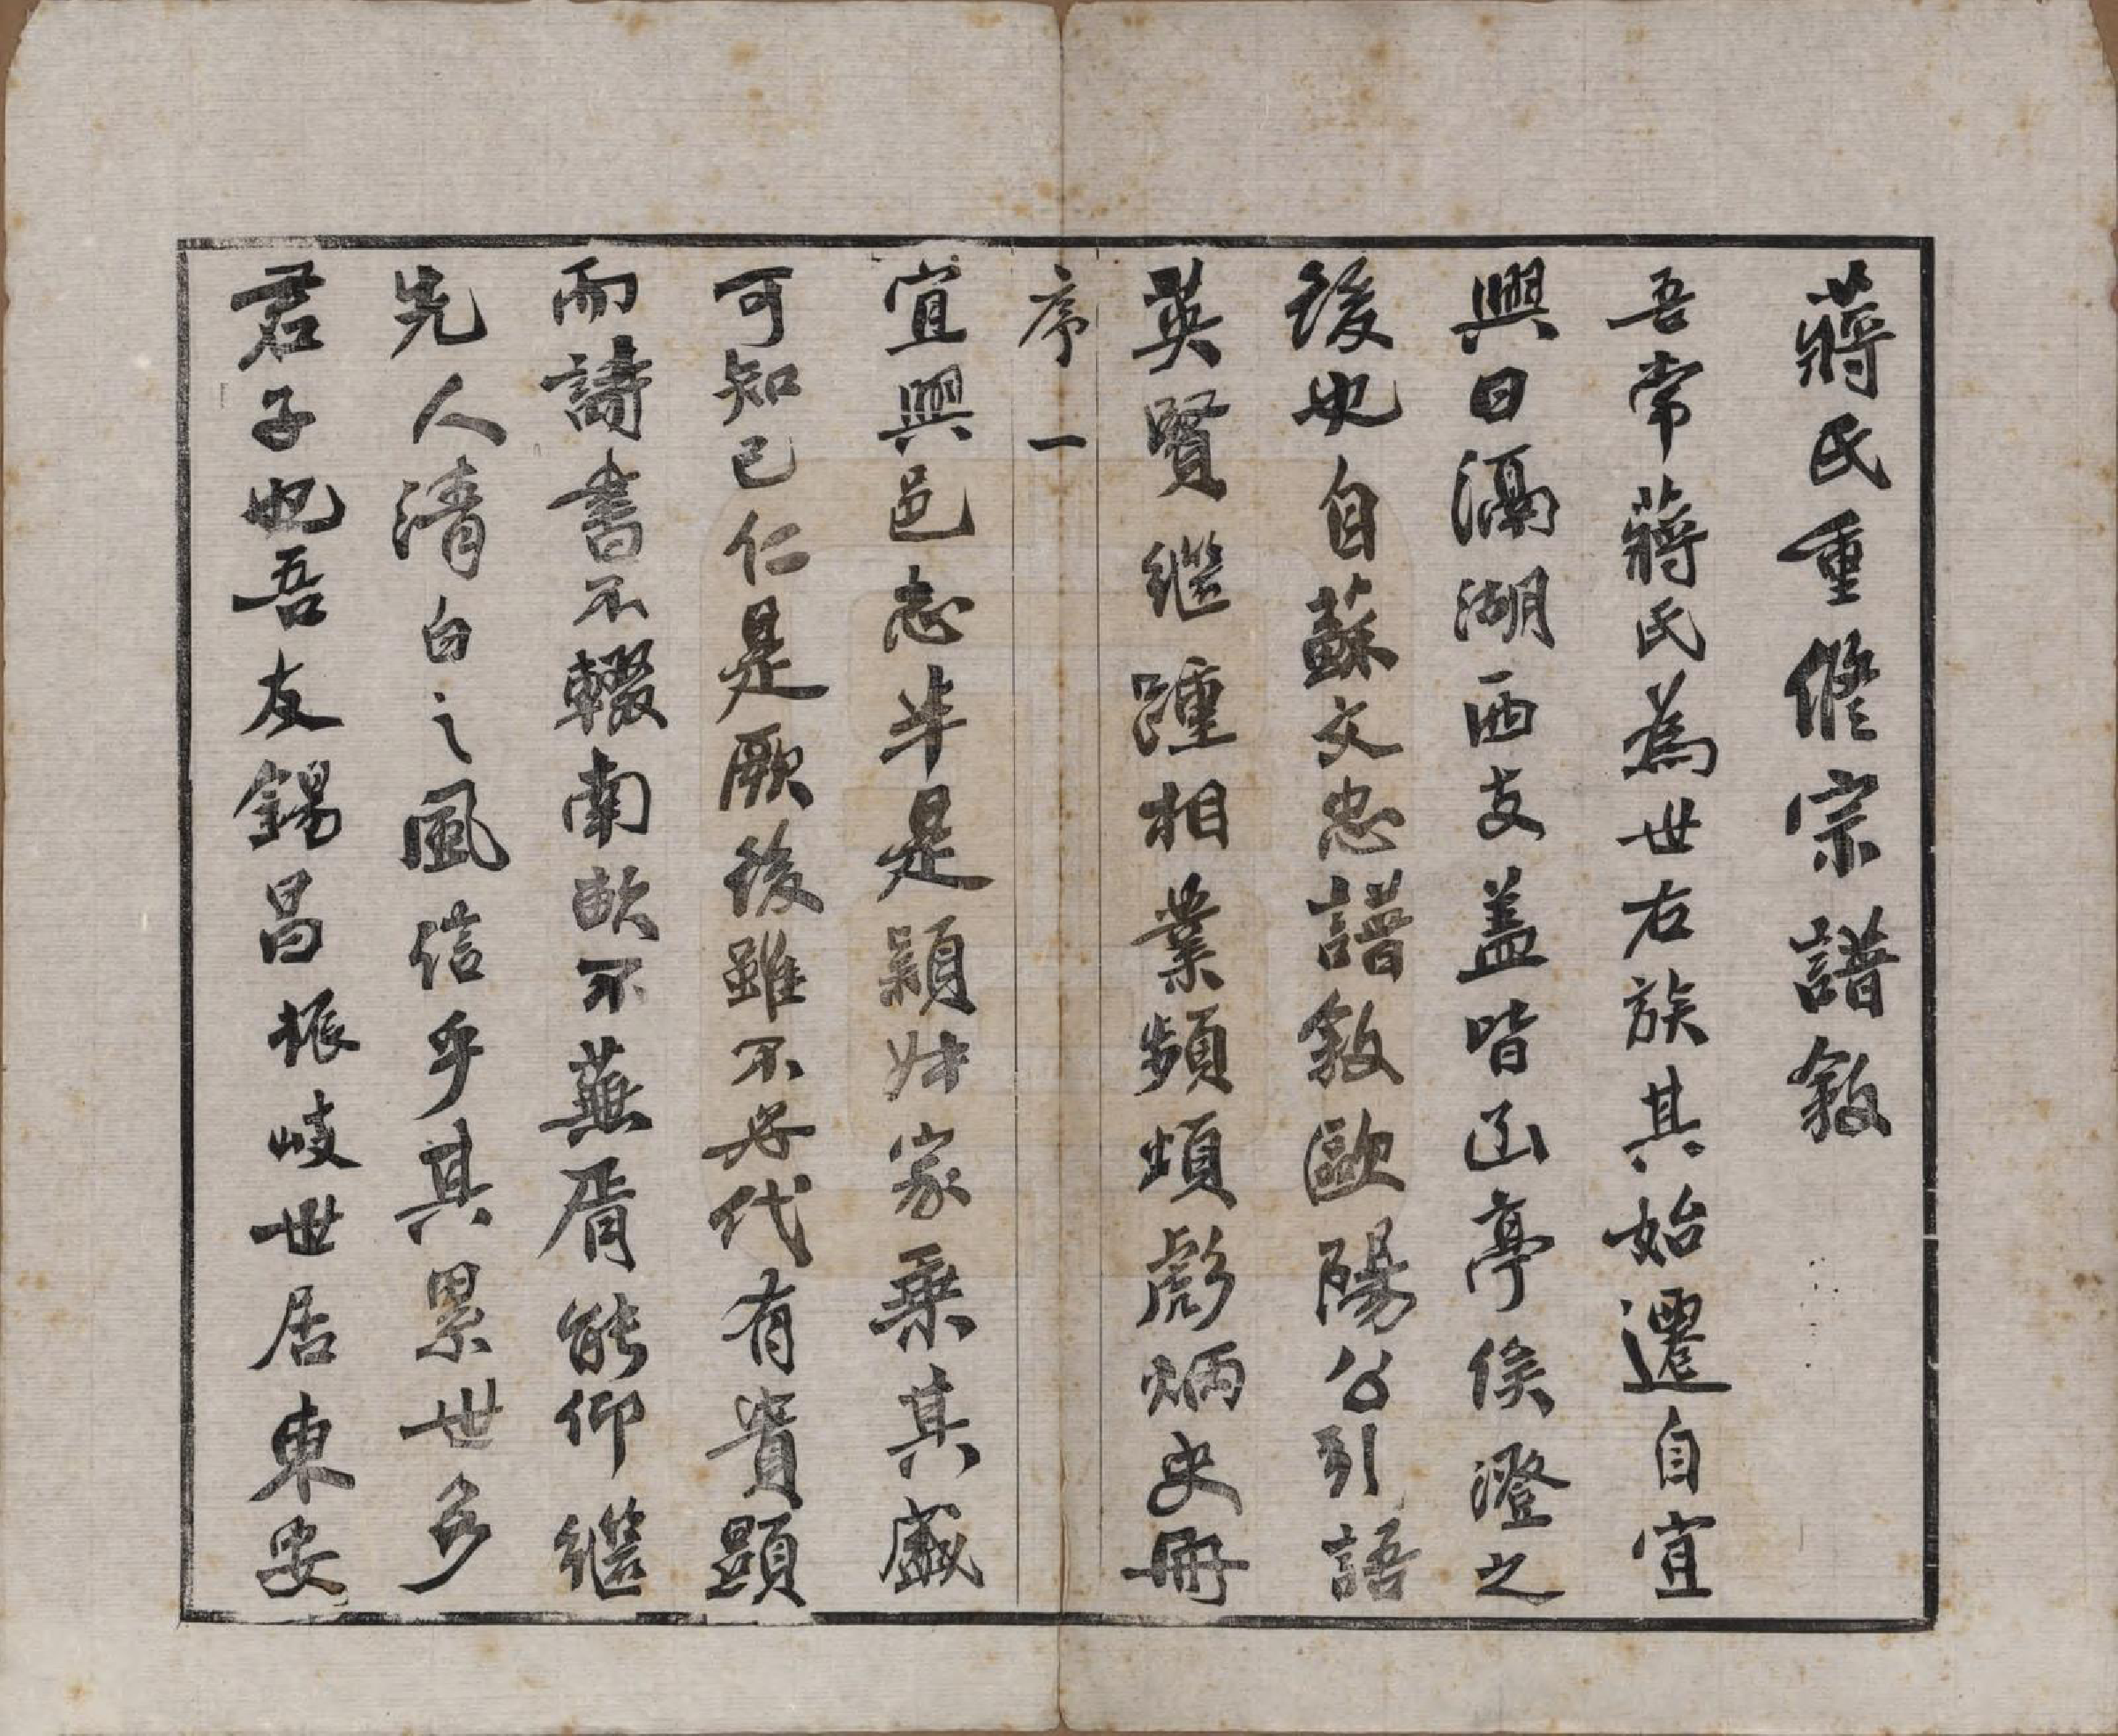 蔣氏重修宗譜敘
吾常蔣氏為世右族其始遷自宜
興曰滆湖西支蓋皆凾亭侯澄之
後也自蘇文忠譜敘歐陽公引語
英賢繼踵相業頻煩彪炳史冊
序一
宜興邑志半是潁妣家乘其盛
可知已仁是厥後雖不必代有貴顯
而詩書不輟南畝不蕪胥能仰繼
先人清白之風信乎其累世多
君子也吾友錫昌振岐世居東安